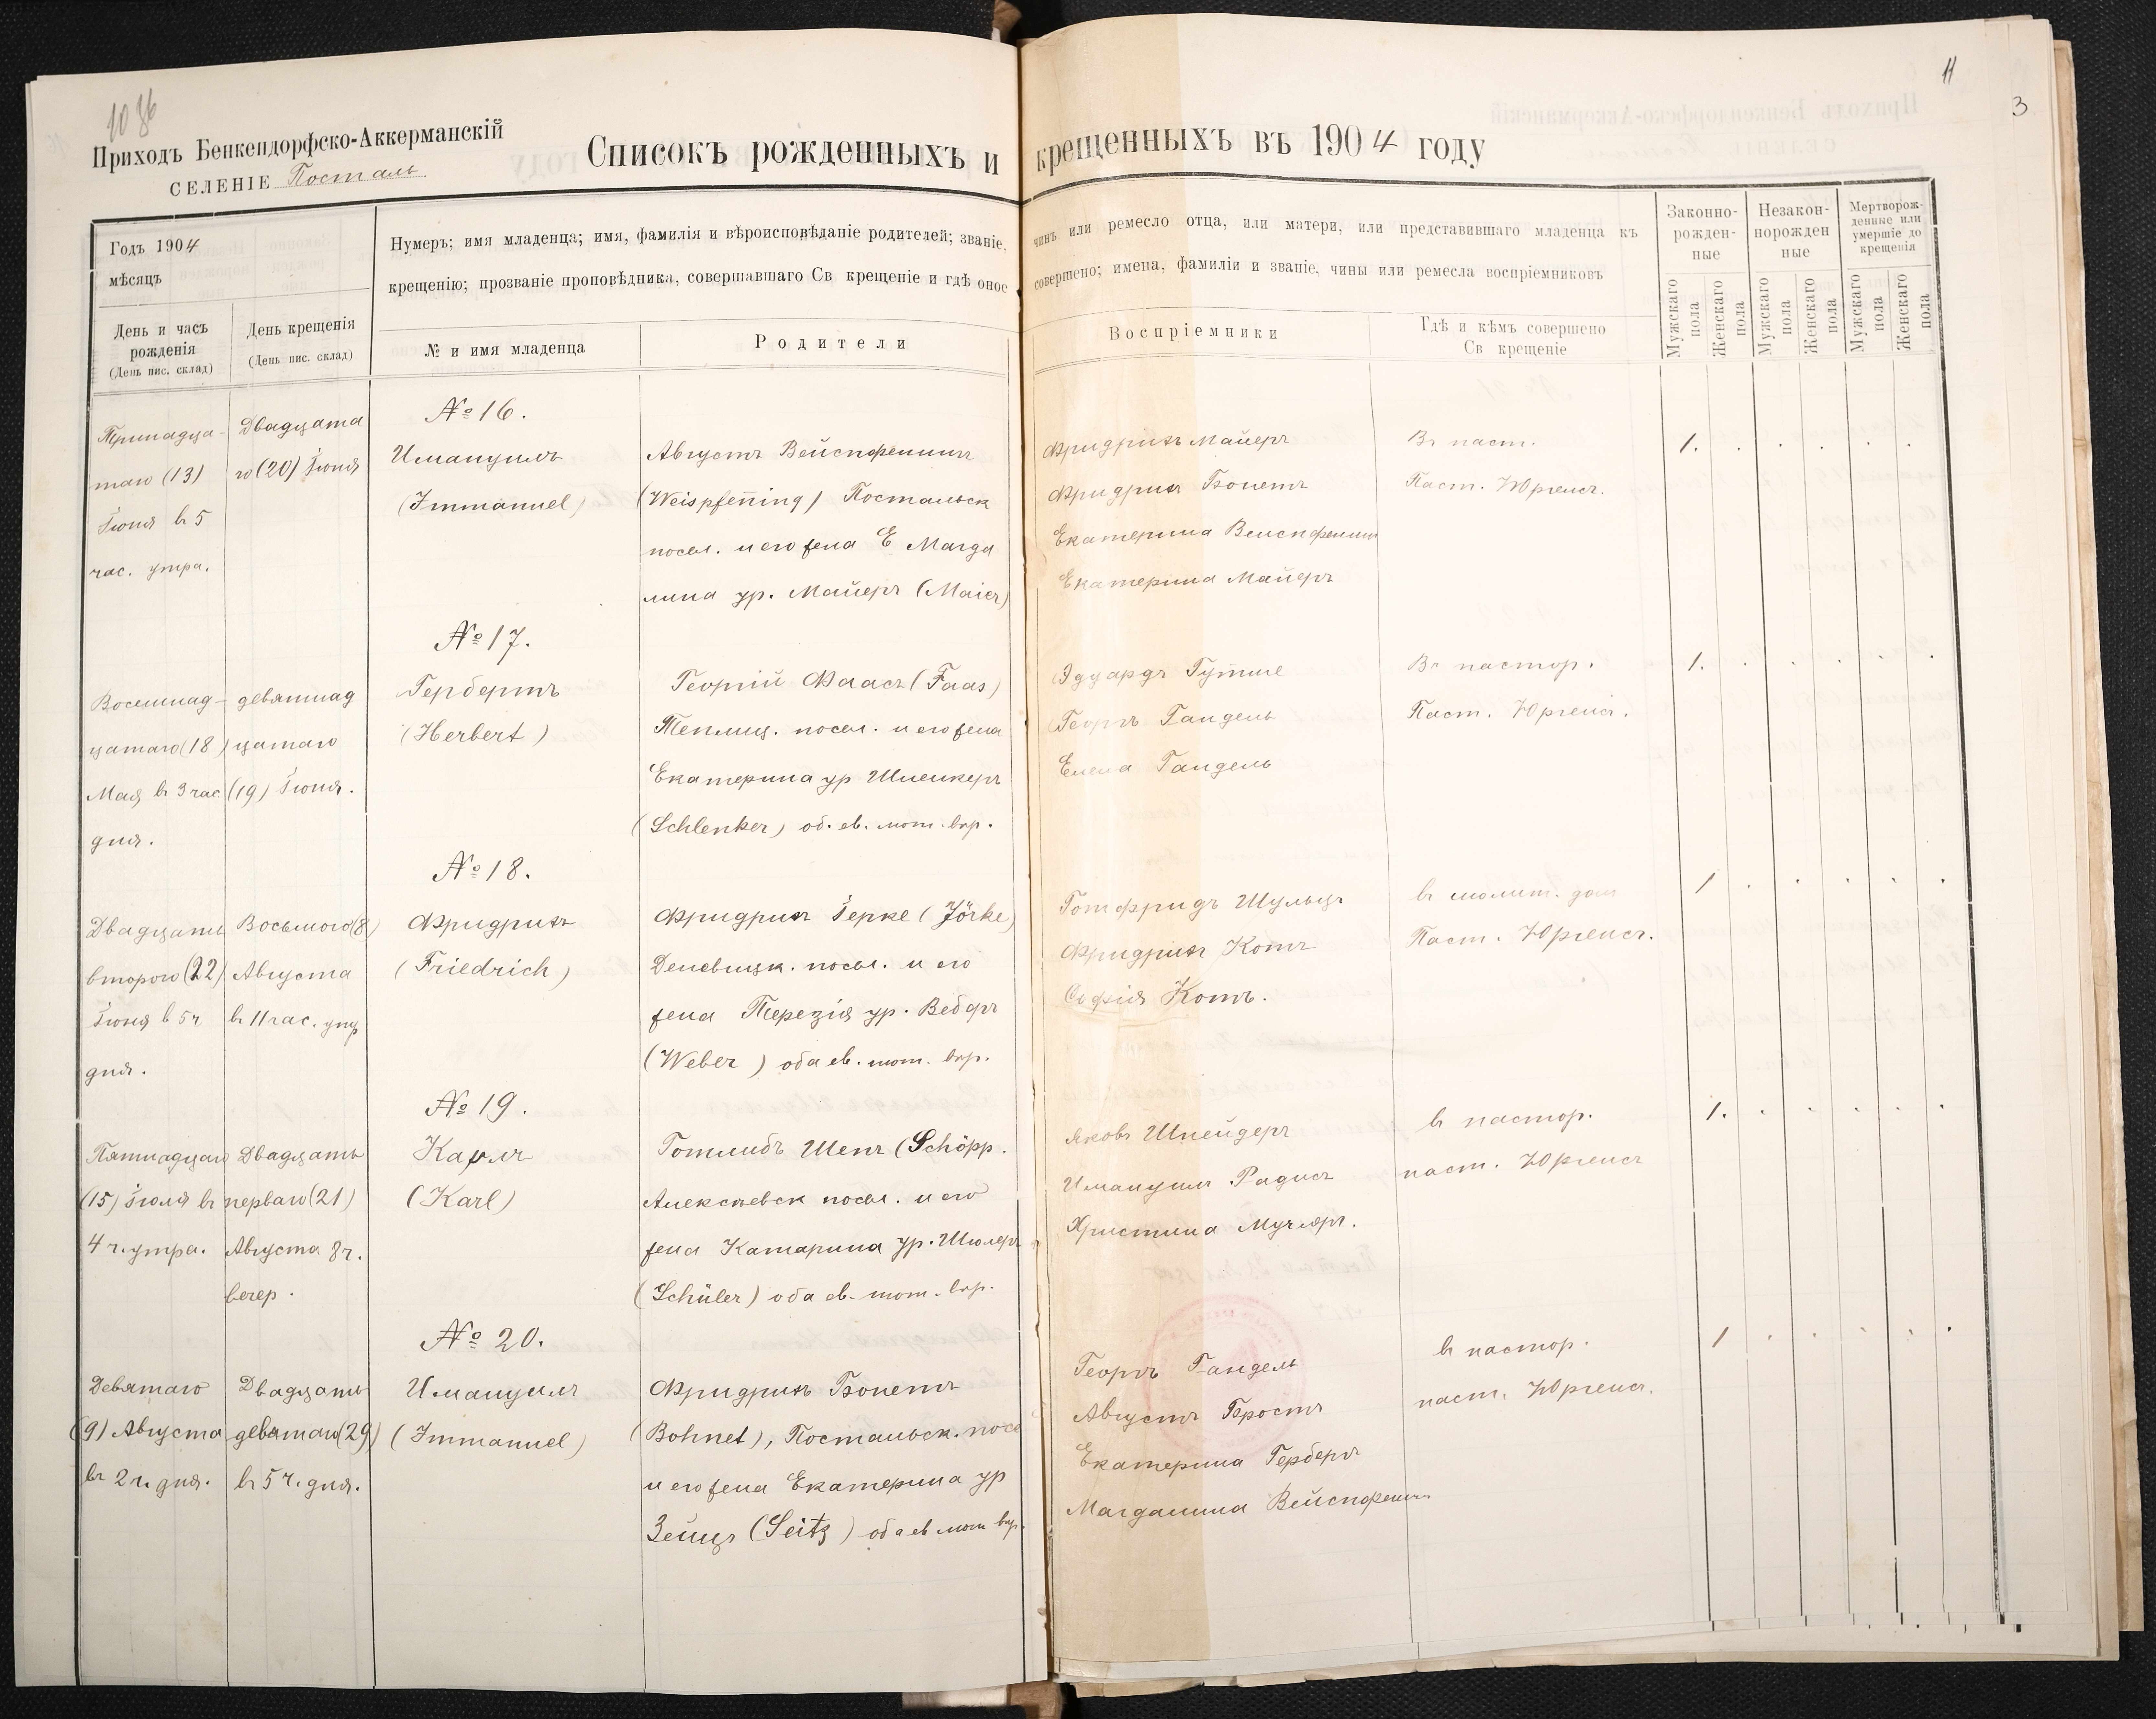 1086
11
3
Приходъ Бенкендорфско-Аккерманскій
СЕЛЕНІЕ Посталь
Списокъ рожденныхъ и крещенныхъ въ 1904 году
Годъ 1904
мѣсяцъ
День и часъ
рожденія
(День пис. склад)
День крещенія
(День пис. склад)
Нумеръ; имя младенца; имя, фамилія и вѣроисповѣданіе родителей; званіе, чинъ или ремесло отца, или матери, или представившаго младенца къ
крещенію; прозваніе проповѣдника, совершавшаго Св крещеніе и гдѣ оное совершено; имена, фамиліи и званіе, чины или ремесла воспріемниковъ
№ и имя младенца
Родители
Воспріемники
Гдѣ и кѣмъ совершено
Св крещеніе
Законно-
рожден-
ные
Незакон-
норожден
ные
Мертворож-
денные или
умершіе до
крещенія
Мужскаго
пола
Женскаго
пола
Мужскаго
пола
Женскаго
пола
Мужскаго
пола
Женскаго
пола
№ 16.
Тринадца-
таго (13)
Іюня въ 5
час. утра.
Двадцата
го (20) Іюня
Имануилъ
(Immanuel)
Августъ Вейспфенингъ
(Weispfening) Постальск
посел. и его жена Е Магда
лина ур. Майеръ (Maier)
Фридрихъ Майеръ
Фридрихъ Бонетъ
Екатерина Вейспфенинг
Екатерина Майеръ
Въ паст.
Паст. Юргенсъ.
1.
№ 17.
Восемнад-
цатаго (18)
Мая въ 3 час
дня.
девятнад
цатаго
(19) Іюня.
Гербертъ
(Herbert)
Георгій Фаасъ (Faas)
Теплиц. посел. и его жена
Екатерина ур Шленкеръ
(Schlenker) об. ев. лют. вѣр.
Эдуардъ
Георгъ Гандель
Елена Гандель
Въ пастор.
Паст. Юргенсъ.
1.
№ 18.
Двадцать
второго (22)
Іюня в 5 ч
дня.
Восьмого (8)
Августа
въ 11 час. утр
Фридрихъ
(Friedrich)
Фридрихъ Іерке (Jörke)
Деневицк. посел. и его
жена Терезія ур. Веберъ
(Weber) оба ев. лют. вѣр.
Готфридъ Шульцъ
Фридрихъ Котъ
Софія Котъ.
въ молит. дом
Паст. Юргенсъ.
1
№ 19.
Пятнадцаго
(15) Іюля въ
4 ч. утра.
Двадцать
перваго (21)
Августа 8 ч.
вечер.
Карлъ
(Karl)
Готлибъ Шепъ (Schöpp.
Алексѣевск посел. и его
жена Катарина ур. Шюлеръ
(Schüler) оба ев. лют. вѣр.
Яковъ Шнейдеръ
Имануилъ Радисъ
Христина
въ пастор.
паст. Юргенсъ
1.
№ 20.
Девятаго
(9) Августа
въ 2 ч. дня.
Двадцать
девятаго (29)
въ 5 ч. дня.
Имануилъ
(Immanuel)
Фридрихъ Бонетъ
(Bohnet), Постальск. посе
и его жена Екатерина ур
Зейцъ (Seitz) оба ев лют вѣр.
Георгъ Гандель
Августъ Бростъ
Екатерина Герберъ
Магдалина Вейспфенинг
въ пастор.
паст. Юргенсъ.
1